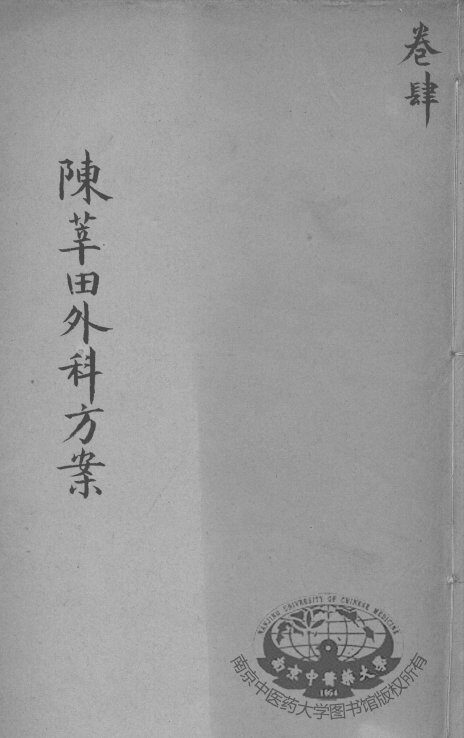 卷肆
陳莘田外科方案
NANJING UNIVERSITY OF CHINESE MEDICINE
南京中醫藥大學
1954
南京中医药大学图书馆版权所有